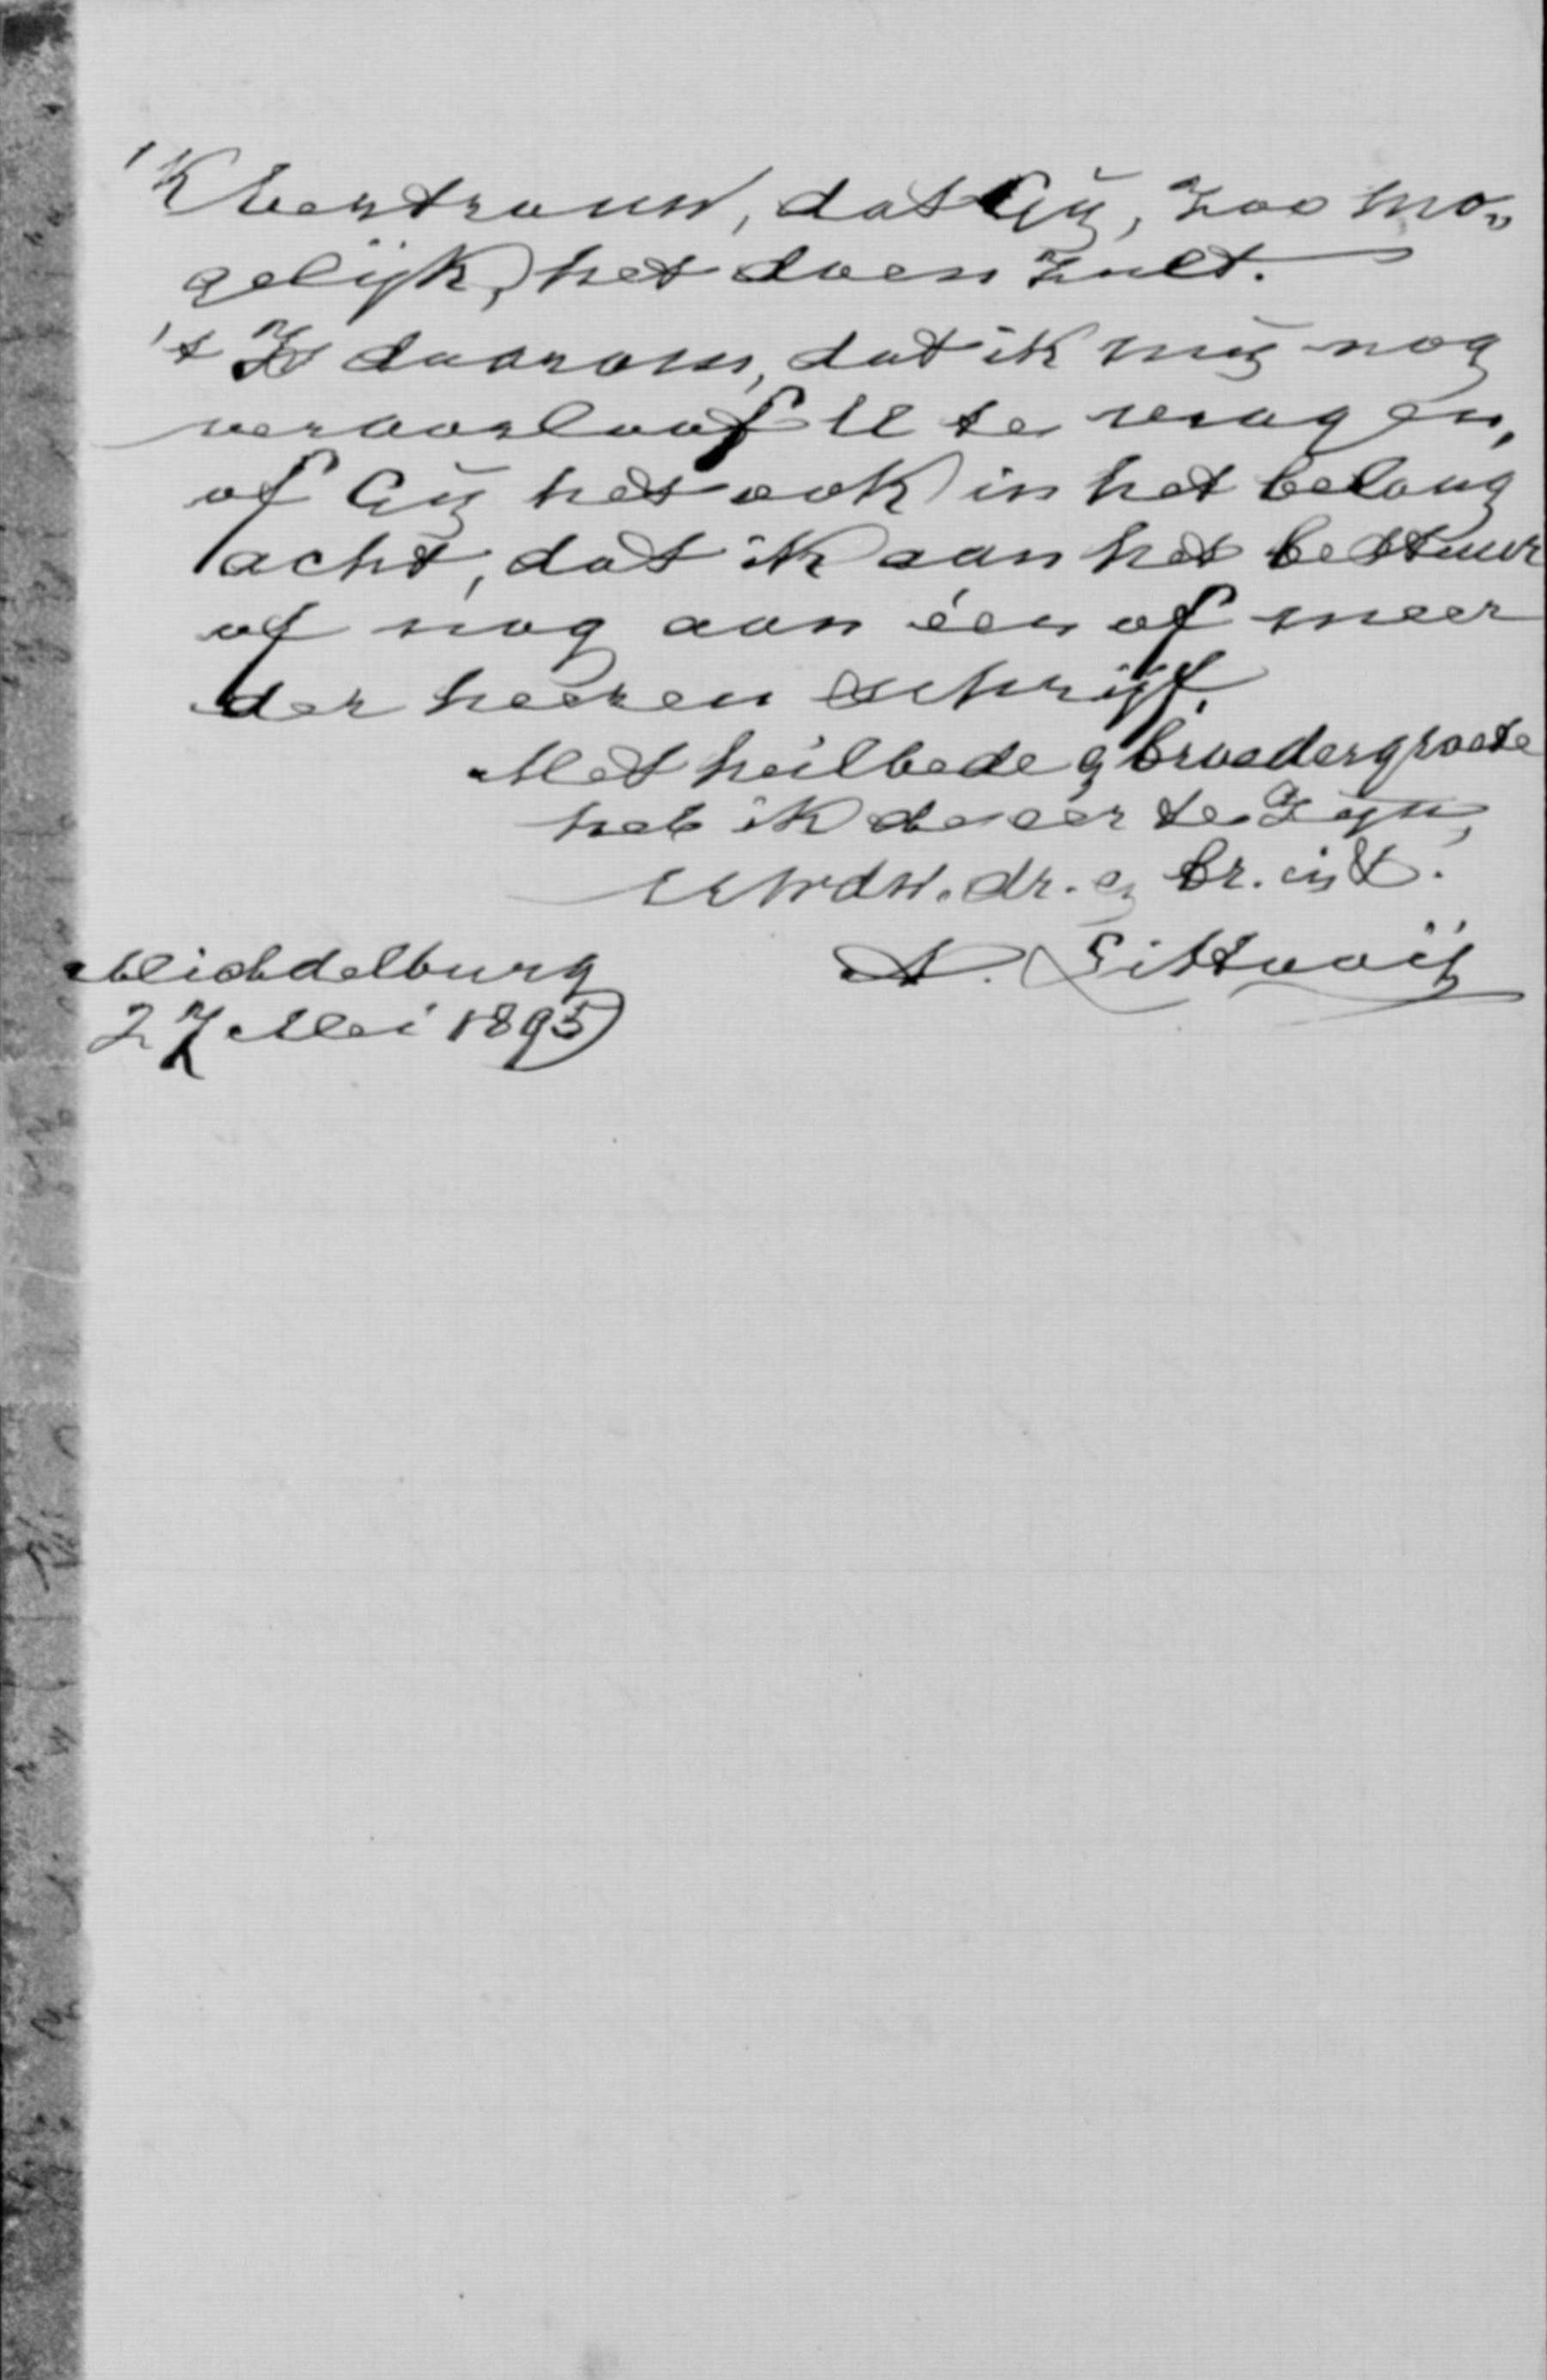 'K vertrouw, dat Gij, zoo mo„
gelijk, het doen zult.
't Is daarom, dat ik mij nog
veroorloof U te vragen,
of Gij het ook in het belang
acht, dat ik aan het bestuur
of nog aan één of meer
der heeren schrijf.
Met heilbede & broedergroete
heb ik de eer te zijn,
UEwdw. dr. & br. in X.
A. Littooij
Middelburg
27 Mei 1895